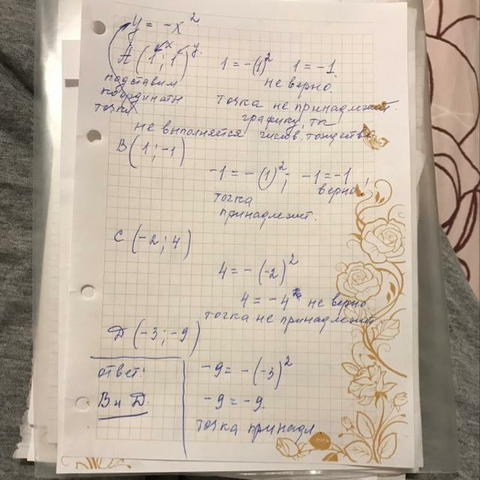 y = -x²
A (1 ; 1)
x y
1 = -(1)² 1 = -1
неверно
подставим
координаты
точки
точка не принадлежит
графику тк
не выполняется числов. тождество
B (1 ; -1)
-1 = -(1)² ; -1 = -1
верно!
точка
принадлежит.
C (-2 ; 4)
4 = -(-2)²
4 = -4 не верно
точка не принадлежит
D (-3 ; -9)
-9 = -(-3)²
-9 = -9.
точка принадл
ответ:
B и D.